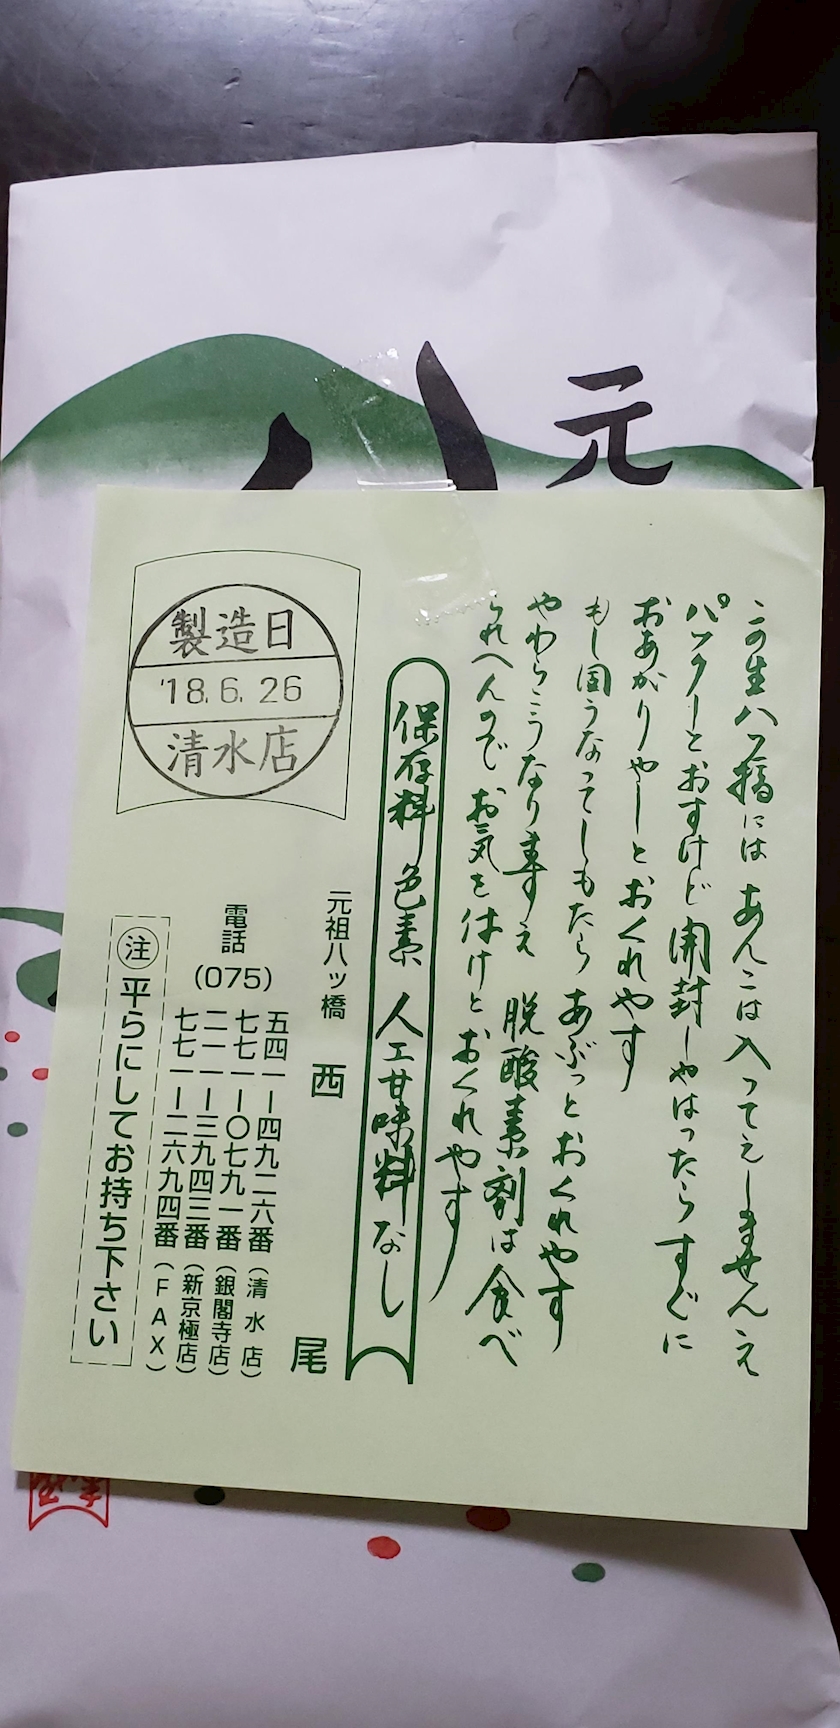 元
この生八ッ橋には あんこは入ってえしませんえ
パックーとおすけど 開封しやはったらすぐに
おあがりやしとおくれやす
もし固うなってしもたら あぶっとおくれやす
やわらこうなりますえ 脱酸素剤は食べ
られへんので お気を付けとおくれやす
保存料 色素 人工甘味料なし
元祖八ッ橋 西 尾
電話(075)
五四一ー四九二六番(清水店)
七七一ー〇七九一番(銀閣寺店)
二一一ー三九四三番(新京極店)
七七一ー二六九四番(FAX)
注 平らにしてお持ち下さい
製造日
'18.6.26
清水店